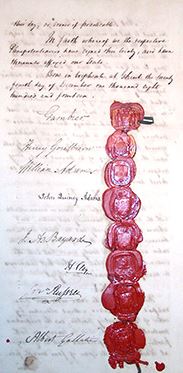 this day, or sooner if practicable.
In faith whereof, we the respective
Plenipotentiaries have signed this treaty, and have
thereunto affixed our Seals.
Done in triplicate at Ghent the twenty
fourth day of December one thousand eight
hundred and fourteen.
Gambier
Henry Goulburn
William Adams
John Quincy Adams
J. A. Bayard
H. Clay
Jon. Russell
Albert Gallatin